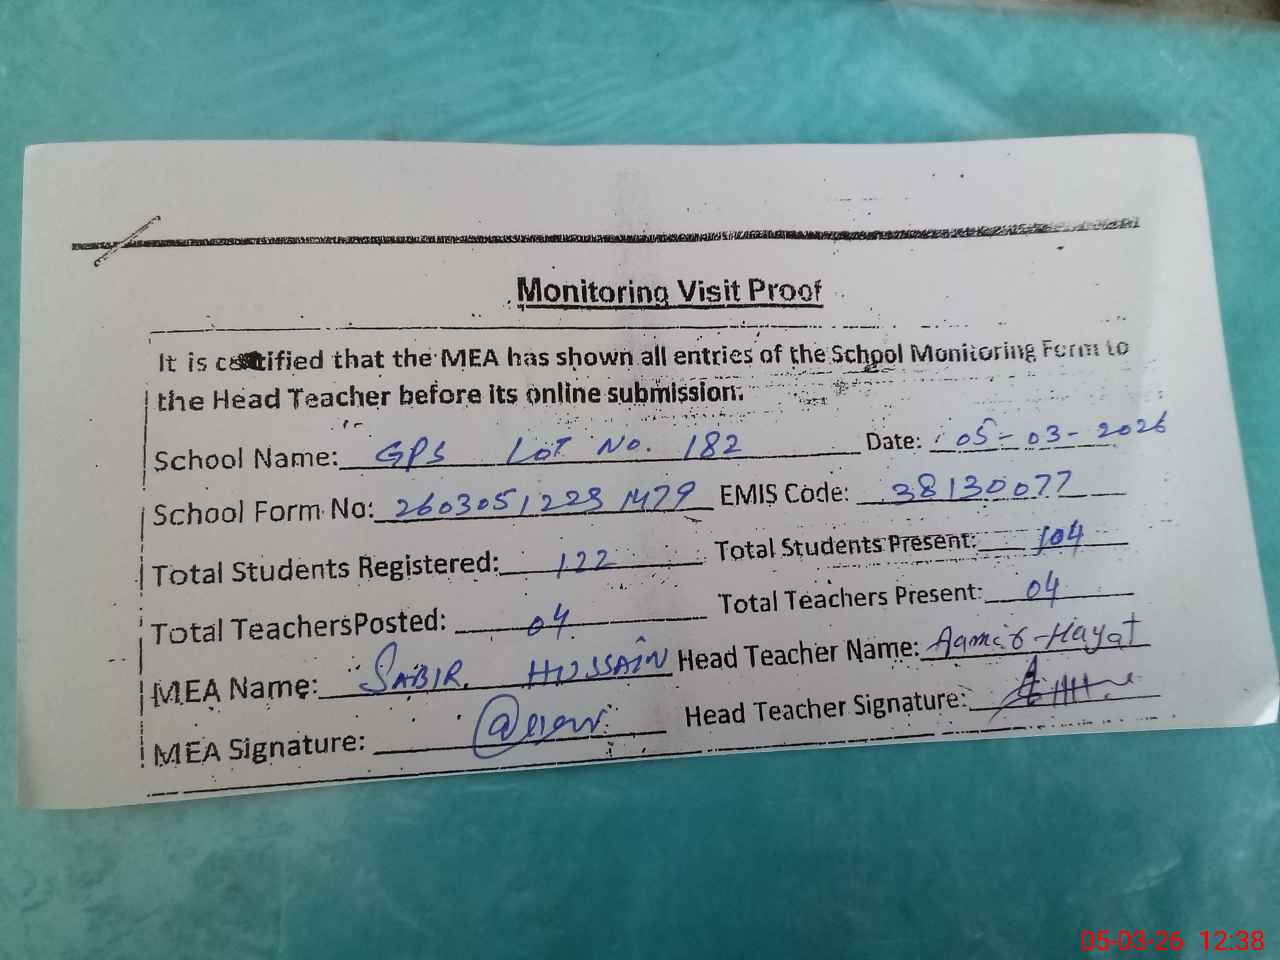 Monitoring Visit Proof
It is certified that the MEA has shown all entries of the School Monitoring Form to
the Head Teacher before its online submission.
School Name: GPS Lot No. 182 Date: 05-03-2026
School Form No: 26030512231479 EMIS Code: 38130077
Total Students Registered: 122 Total Students Present: 104
Total TeachersPosted: 04 Total Teachers Present: 04
MEA Name: SABIR HUSSAIN Head Teacher Name: Aamir Hayat
MEA Signature: Head Teacher Signature:
05-03-26 12:38